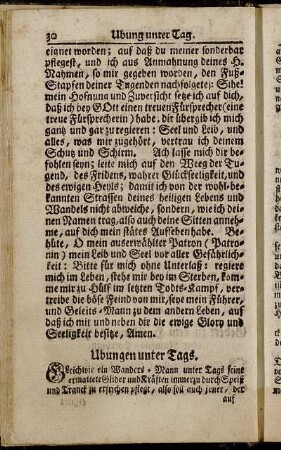 30 Ubung unter Tag.
eignet worden; auf daß du meiner sonderbar
pflegest, und ich aus Anmahnung deines H.
Nahmen, so mir gegeben worden, den Fuß-
Stapfen deiner Tugenden nachfolgete: Sihe!
mein Hofnung und Zuversicht setze ich auf dich,
daß ich bey GOtt einen treuen Fürsprecher (eine
treue Fürsprecherin) habe. dir übergib ich mich
gantz und gar zu regieren: Seel und Leib, und
alles, was mir zugehört, vertrau ich deinem
Schutz und Schirm. Ach lasse mich dir be-
fohlen seyn; leite mich auf den Weeg der Tu-
gend, des Fridens, wahrer Glückseeligkeit, und
des ewigen Heyls; damit ich von der wohl-be-
kannten Strassen deines heiligen Lebens und
Wandels nicht abweiche, sondern, wie ich dei-
nen Namen trag, also auch deine Sitten anneh-
me, auf dich mein stätes Aufsehen habe. Be-
hüte, O mein auserwählter Patron (Patro-
nin) mein Leib und Seel vor aller Gefährlich-
keit: Bitte für mich ohne Unterlaß: regiere
mich im Leben, stehe mir bey im Sterben, kom-
me mir zu Hülf im letzten Todts-Kampf, ver-
treibe die böse Feind von mir, seye mein Führer,
und Geleits-Mann zu dem andern Leben, auf
daß ich mit und neben dir die ewige Glory und
Seeligkeit besitze, Amen.
Ubungen unter Tags.
Gleichwie ein Wanders-Mann unter Tags seine
ermattete Glider und Kräften immerzu durch Speiß
und Tranck zu erfrischen pflegt, also soll auch jener, der
auf